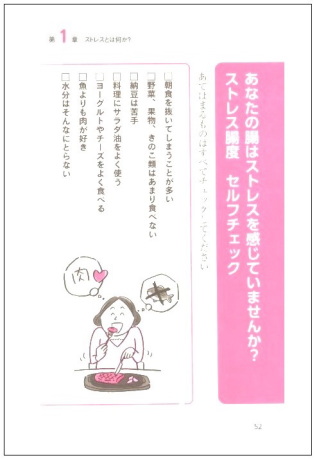 第1章 ストレスとは何か?
あなたの腸はストレスを感じていませんか?
ストレス腸度 セルフチェック
あてはまるものはすべてチェックしてください
□朝食を抜いてしまうことが多い
□野菜、果物、きのこ類はあまり食べない
□納豆は苦手
□料理にサラダ油をよく使う
□ヨーグルトやチーズをよく食べる
□魚よりも肉が好き
□水分はそんなにとらない
肉
52